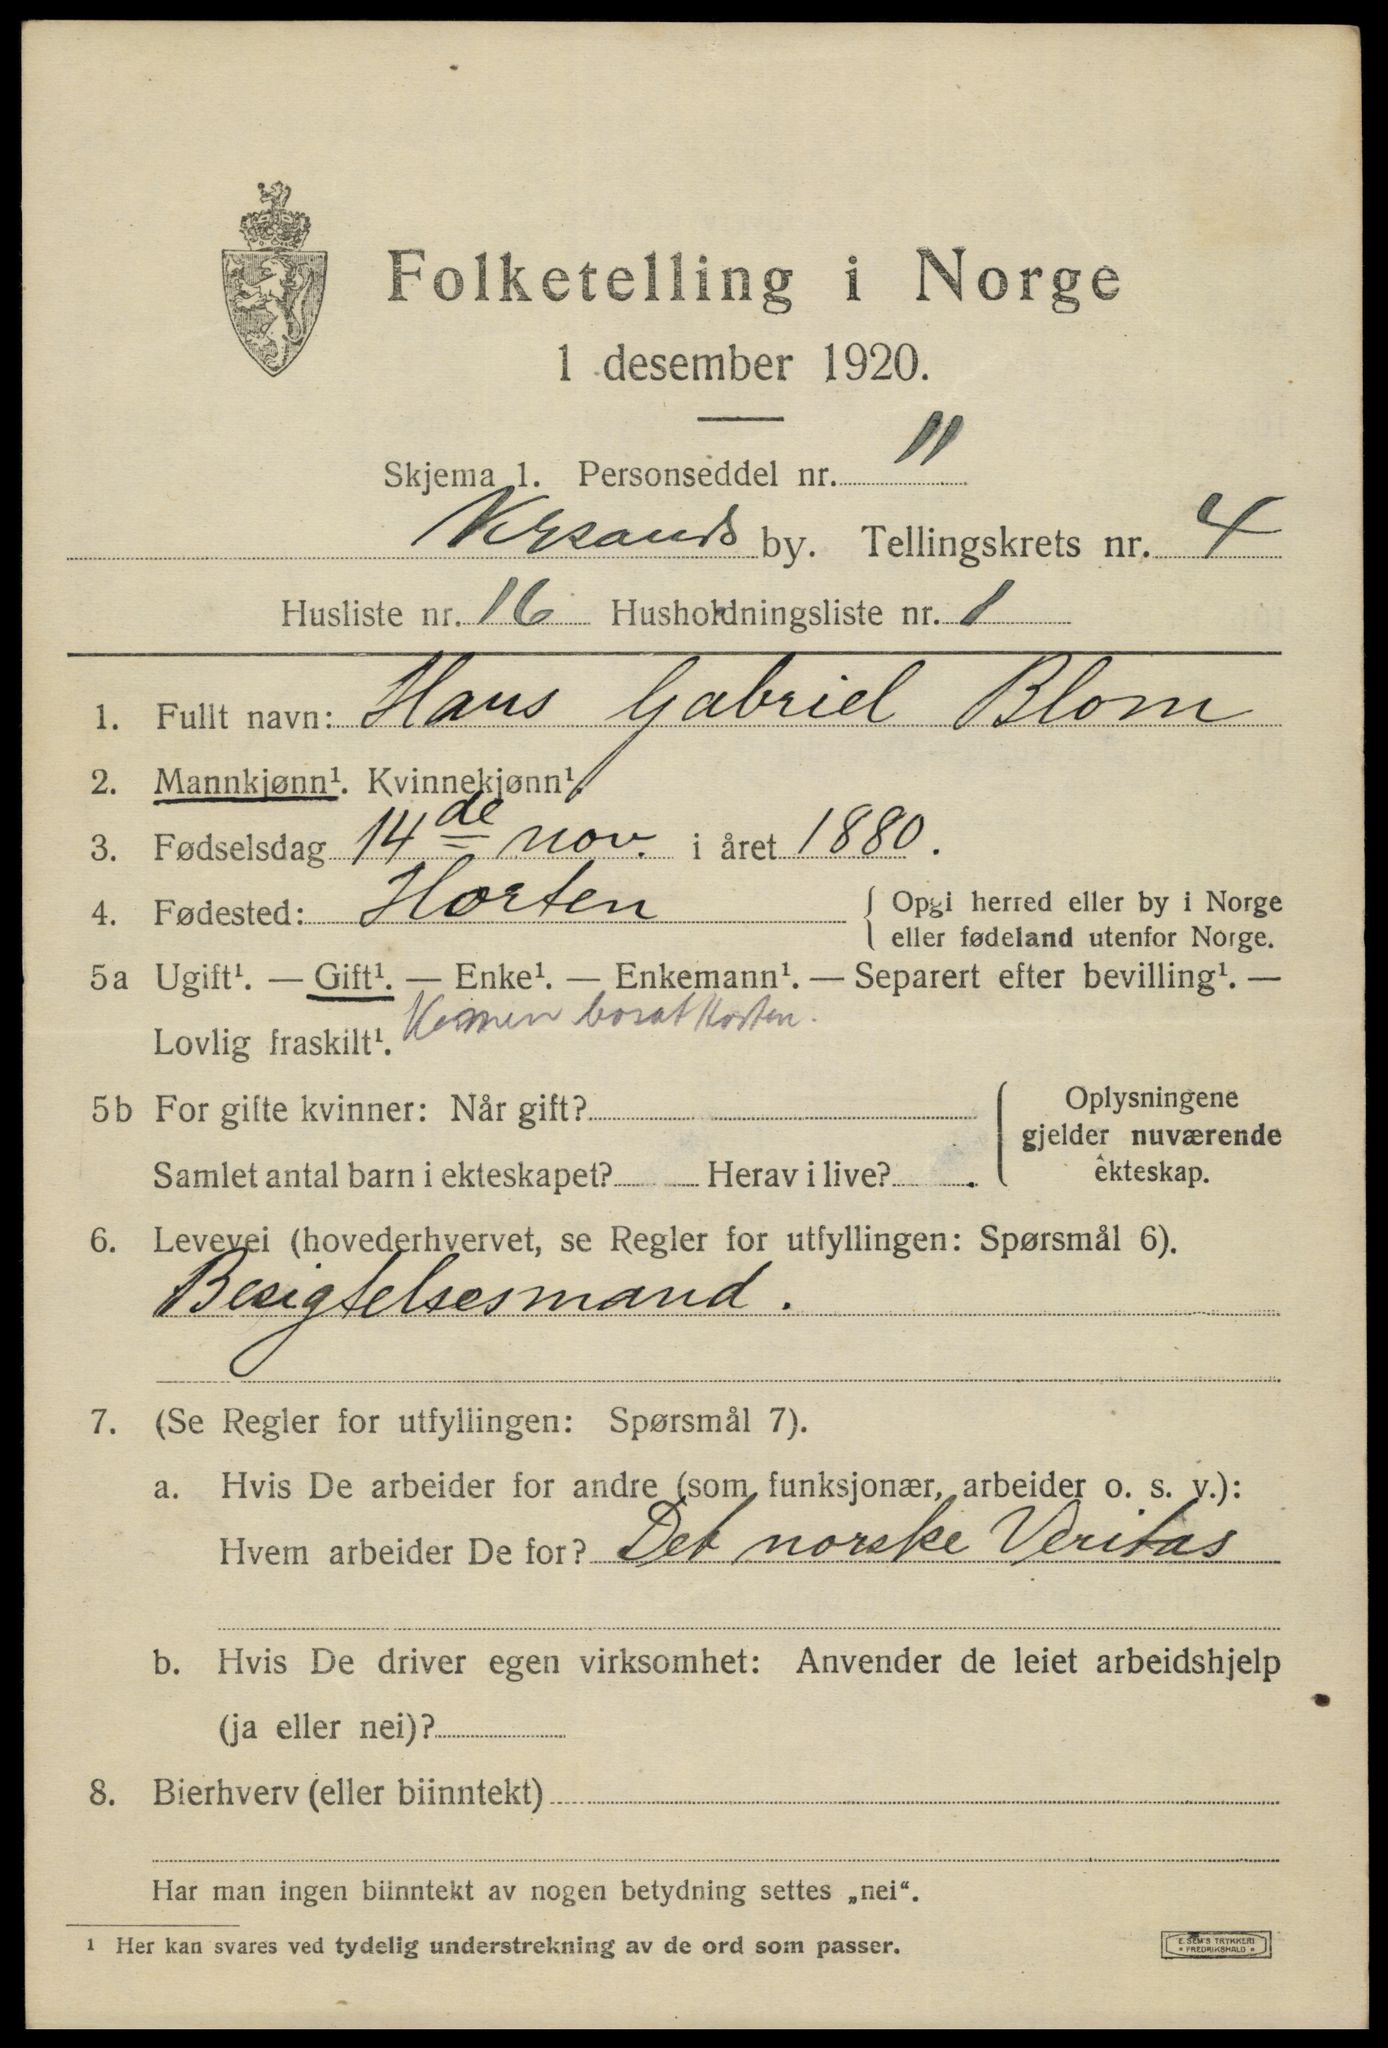 Folketelling i Norge
1 desember 1920.
Skjema 1. Personseddel nr. 11
Krsands by. Tellingskrets nr. 4
Husliste nr. 16 Husholdningsliste nr. 1
1. Fullt navn: Hans Gabriel Blom
2. Mannkjønn¹. Kvinnekjønn¹.
3. Fødselsdag 14de nov. i året 1880.
4. Fødested: Horten { Opgi herred eller by i Norge
eller fødeland utenfor Norge.
5a Ugift¹. — Gift¹. — Enke¹. — Enkemann¹. — Separert efter bevilling¹. —
Lovlig fraskilt¹. bosat Horten.
5b For gifte kvinner: Når gift? Samlet antal barn i ekteskapet? Herav i live?
Oplysningene
gjelder nuværende
ekteskap.
6. Levevei (hovederhvervet, se Regler for utfyllingen: Spørsmål 6).
Besigtelsesmand.
7. (Se Regler for utfyllingen: Spørsmål 7).
a. Hvis De arbeider for andre (som funksjonær, arbeider o. s. v.):
Hvem arbeider De for? Det norske Veritas
b. Hvis De driver egen virksomhet: Anvender de leiet arbeidshjelp
(ja eller nei)?
8. Bierhverv (eller biinntekt)
Har man ingen biinntekt av nogen betydning settes „nei“.
¹ Her kan svares ved tydelig understrekning av de ord som passer.
E. SEM'S TRYKKERI
* FREDRIKSHALD *